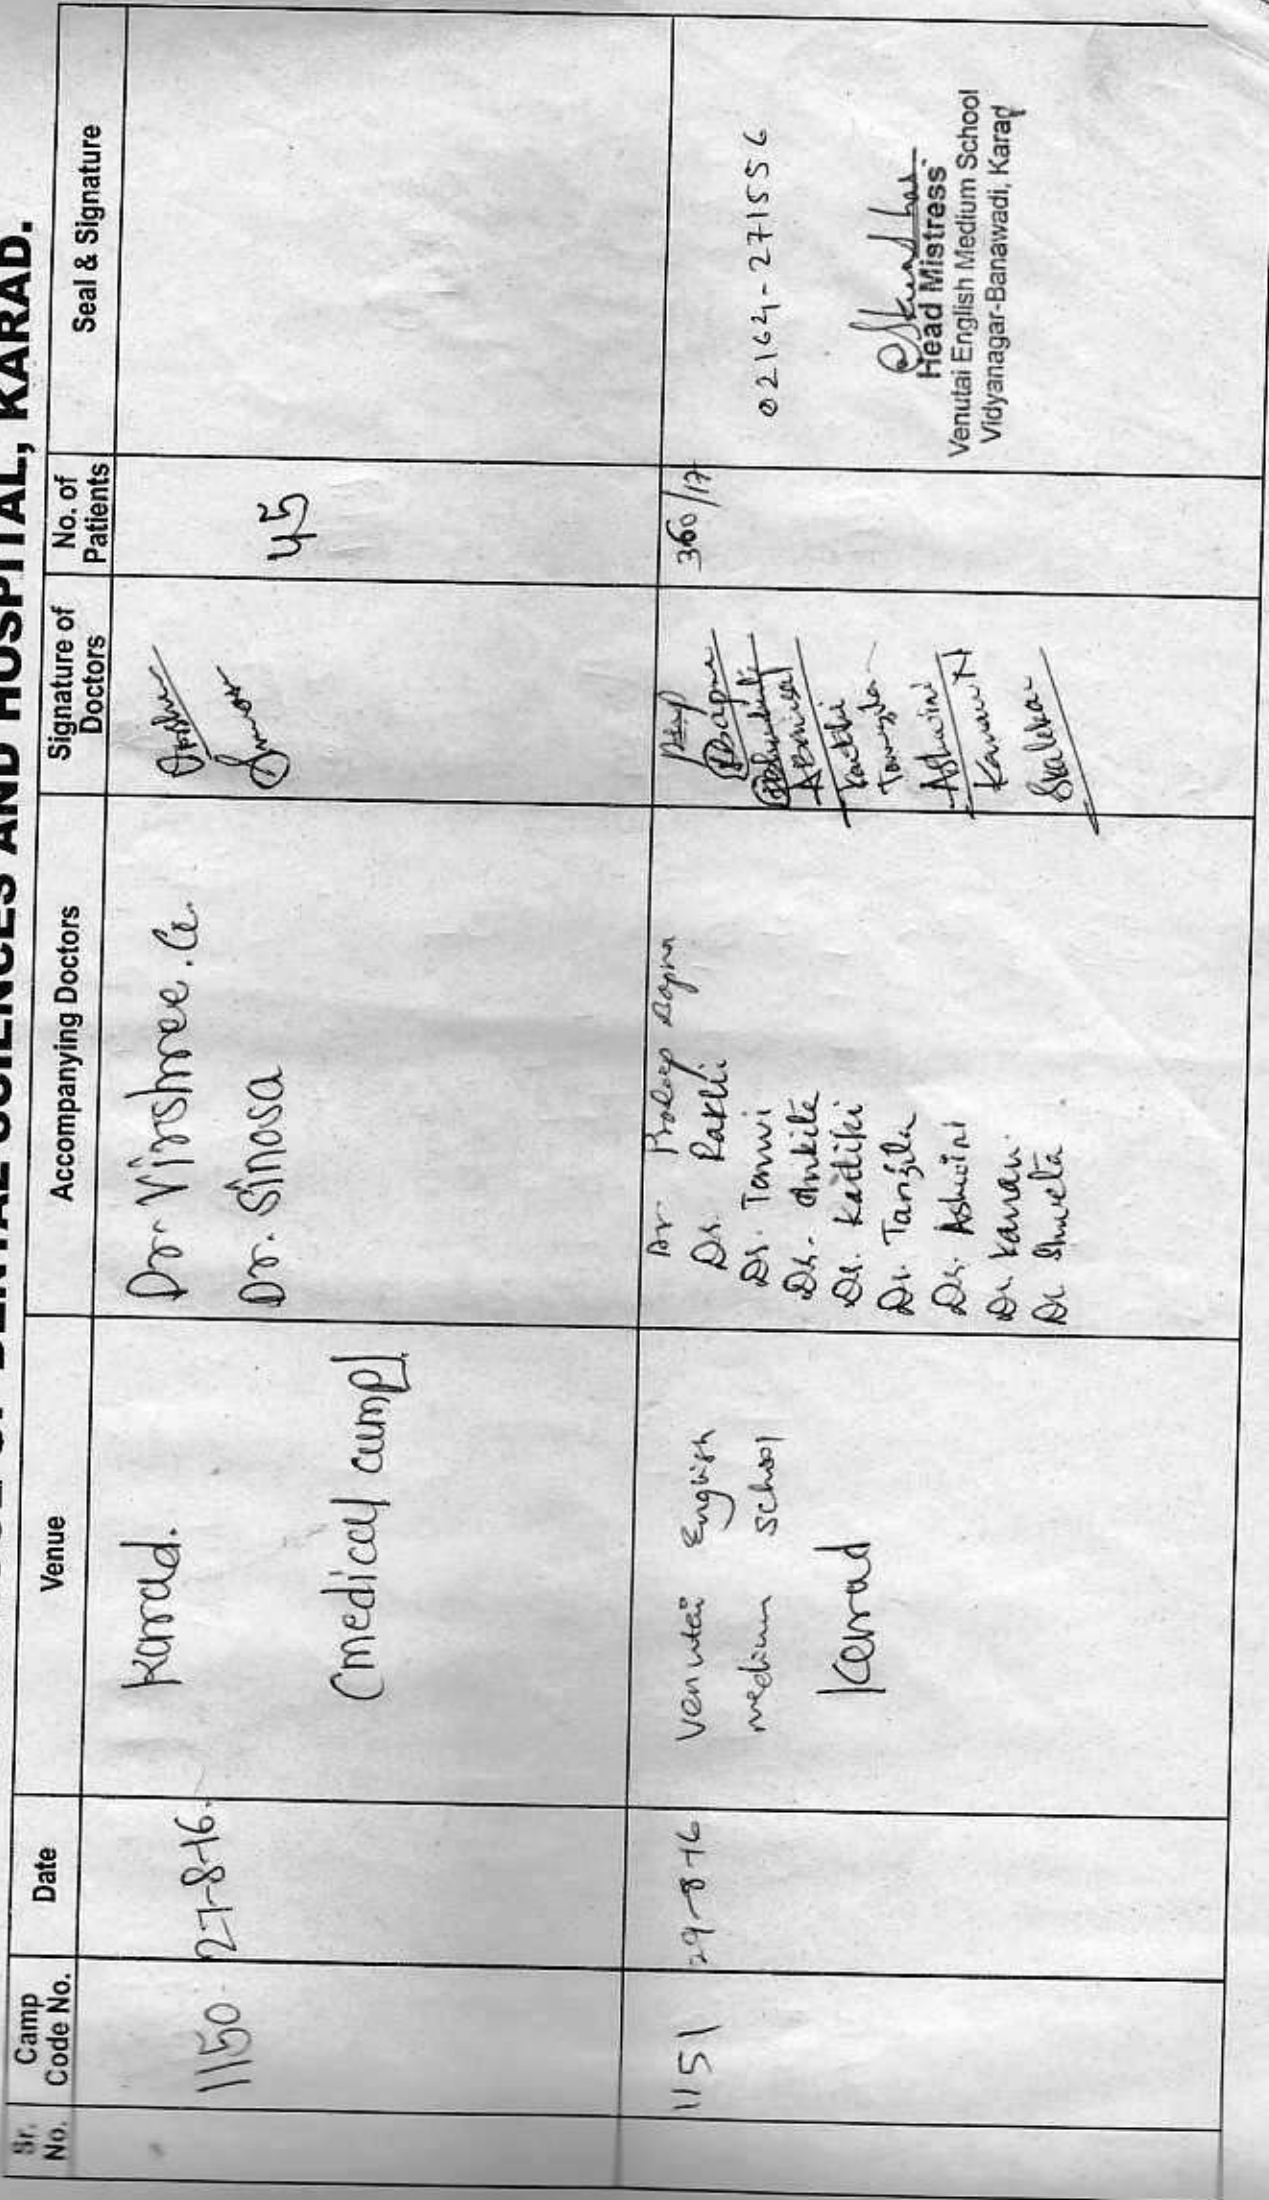 DENTAL SCIENCES AND HOSPITAL, KARAD.
Sr. No.
Camp Code No.
Date
Venue
Accompanying Doctors
Signature of Doctors
No. of Patients
Seal & Signature
1150
27-8-16.
Karad.
(medical camp).
Dr. Virshree. G.
Dr. Sinosa
45
1151
29-8-16
Venutai English
medium school
Karad
Dr Pradeep Sapna
Dr. Rakhi
Dr. Tanvi
Dr. Ankita
Dr. Kartiki
Dr. Tanzila
Dr. Ashwini
Dr Kanan.
Dr Shweta
Kartiki
Tanzila
Ashwini
Kanan N
360/17
02164-271556
Head Mistress
Venutai English Medium School
Vidyanagar-Banawadi, Karad